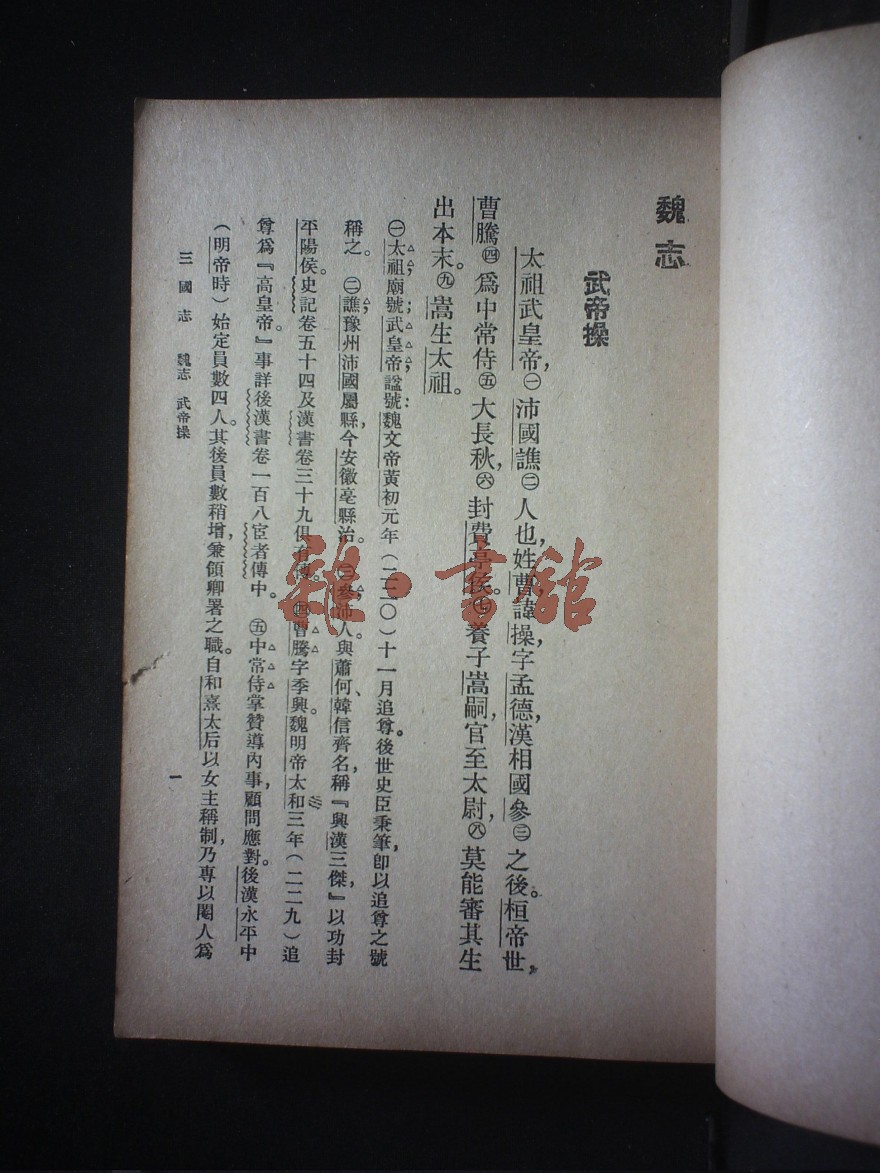 魏志
武帝操
太祖武皇帝，㊀沛國譙㊁人也，姓曹，諱操，字孟德，漢相國參㊂之後。桓帝世，
曹騰㊃爲中常侍㊄大長秋，㊅封費亭侯。㊆養子嵩嗣，官至太尉，㊇莫能審其生
出本末。㊈嵩生太祖。
㊀太祖，廟號；武皇帝，諡號：魏文帝黃初元年（二二〇）十一月追尊。後世史臣秉筆，卽以追尊之號
稱之。㊁譙，豫州沛國屬縣，今安徽亳縣治。㊂參，沛人。與蕭何、韓信齊名，稱『興漢三傑』，以功封
平陽侯。史記卷五十四及漢書卷三十九俱有傳。㊃曹騰字季興。魏明帝太和三年（二二九）追
尊爲『高皇帝。』事詳後漢書卷一百八宦者傳中。㊄中常侍掌贊導內事，顧問應對。後漢永平中
（明帝時）始定員數四人。其後員數稍增，兼領卿署之職。自和熹太后以女主稱制，乃專以閹人爲
三國志 魏志 武帝操 一
雜·書館